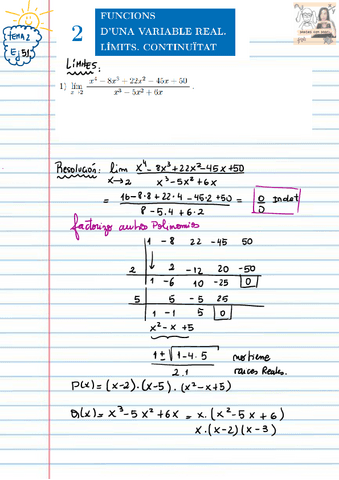 TEMA 2
Ej 51
2
FUNCIONS
D'UNA VARIABLE REAL.
LÍMITS. CONTINUÏTAT
LÍMITES:
1) lím x→2 (x⁴ − 8x³ + 22x² − 45x + 50)/(x³ − 5x² + 6x) .
Resolución: lim x→2 (x⁴ - 8x³ + 22x² - 45x + 50)/(x³ - 5x² + 6x)
= (16 - 8·8 + 22·4 - 45·2 + 50)/(8 - 5·4 + 6·2) = 0/0 Indet
factorizo ambos Polinomios
1 -8 22 -45 50
2 2 -12 20 -50
1 -6 10 -25 0
5 5 -5 25
1 -1 5 0
x² - x + 5
(1 ± √(1 - 4·5))/(2·1) no tiene
raíces Reales.
P(x) = (x-2)·(x-5)·(x²-x+5)
Q(x) = x³ - 5x² + 6x = x·(x² - 5x + 6)
x·(x-2)(x-3)